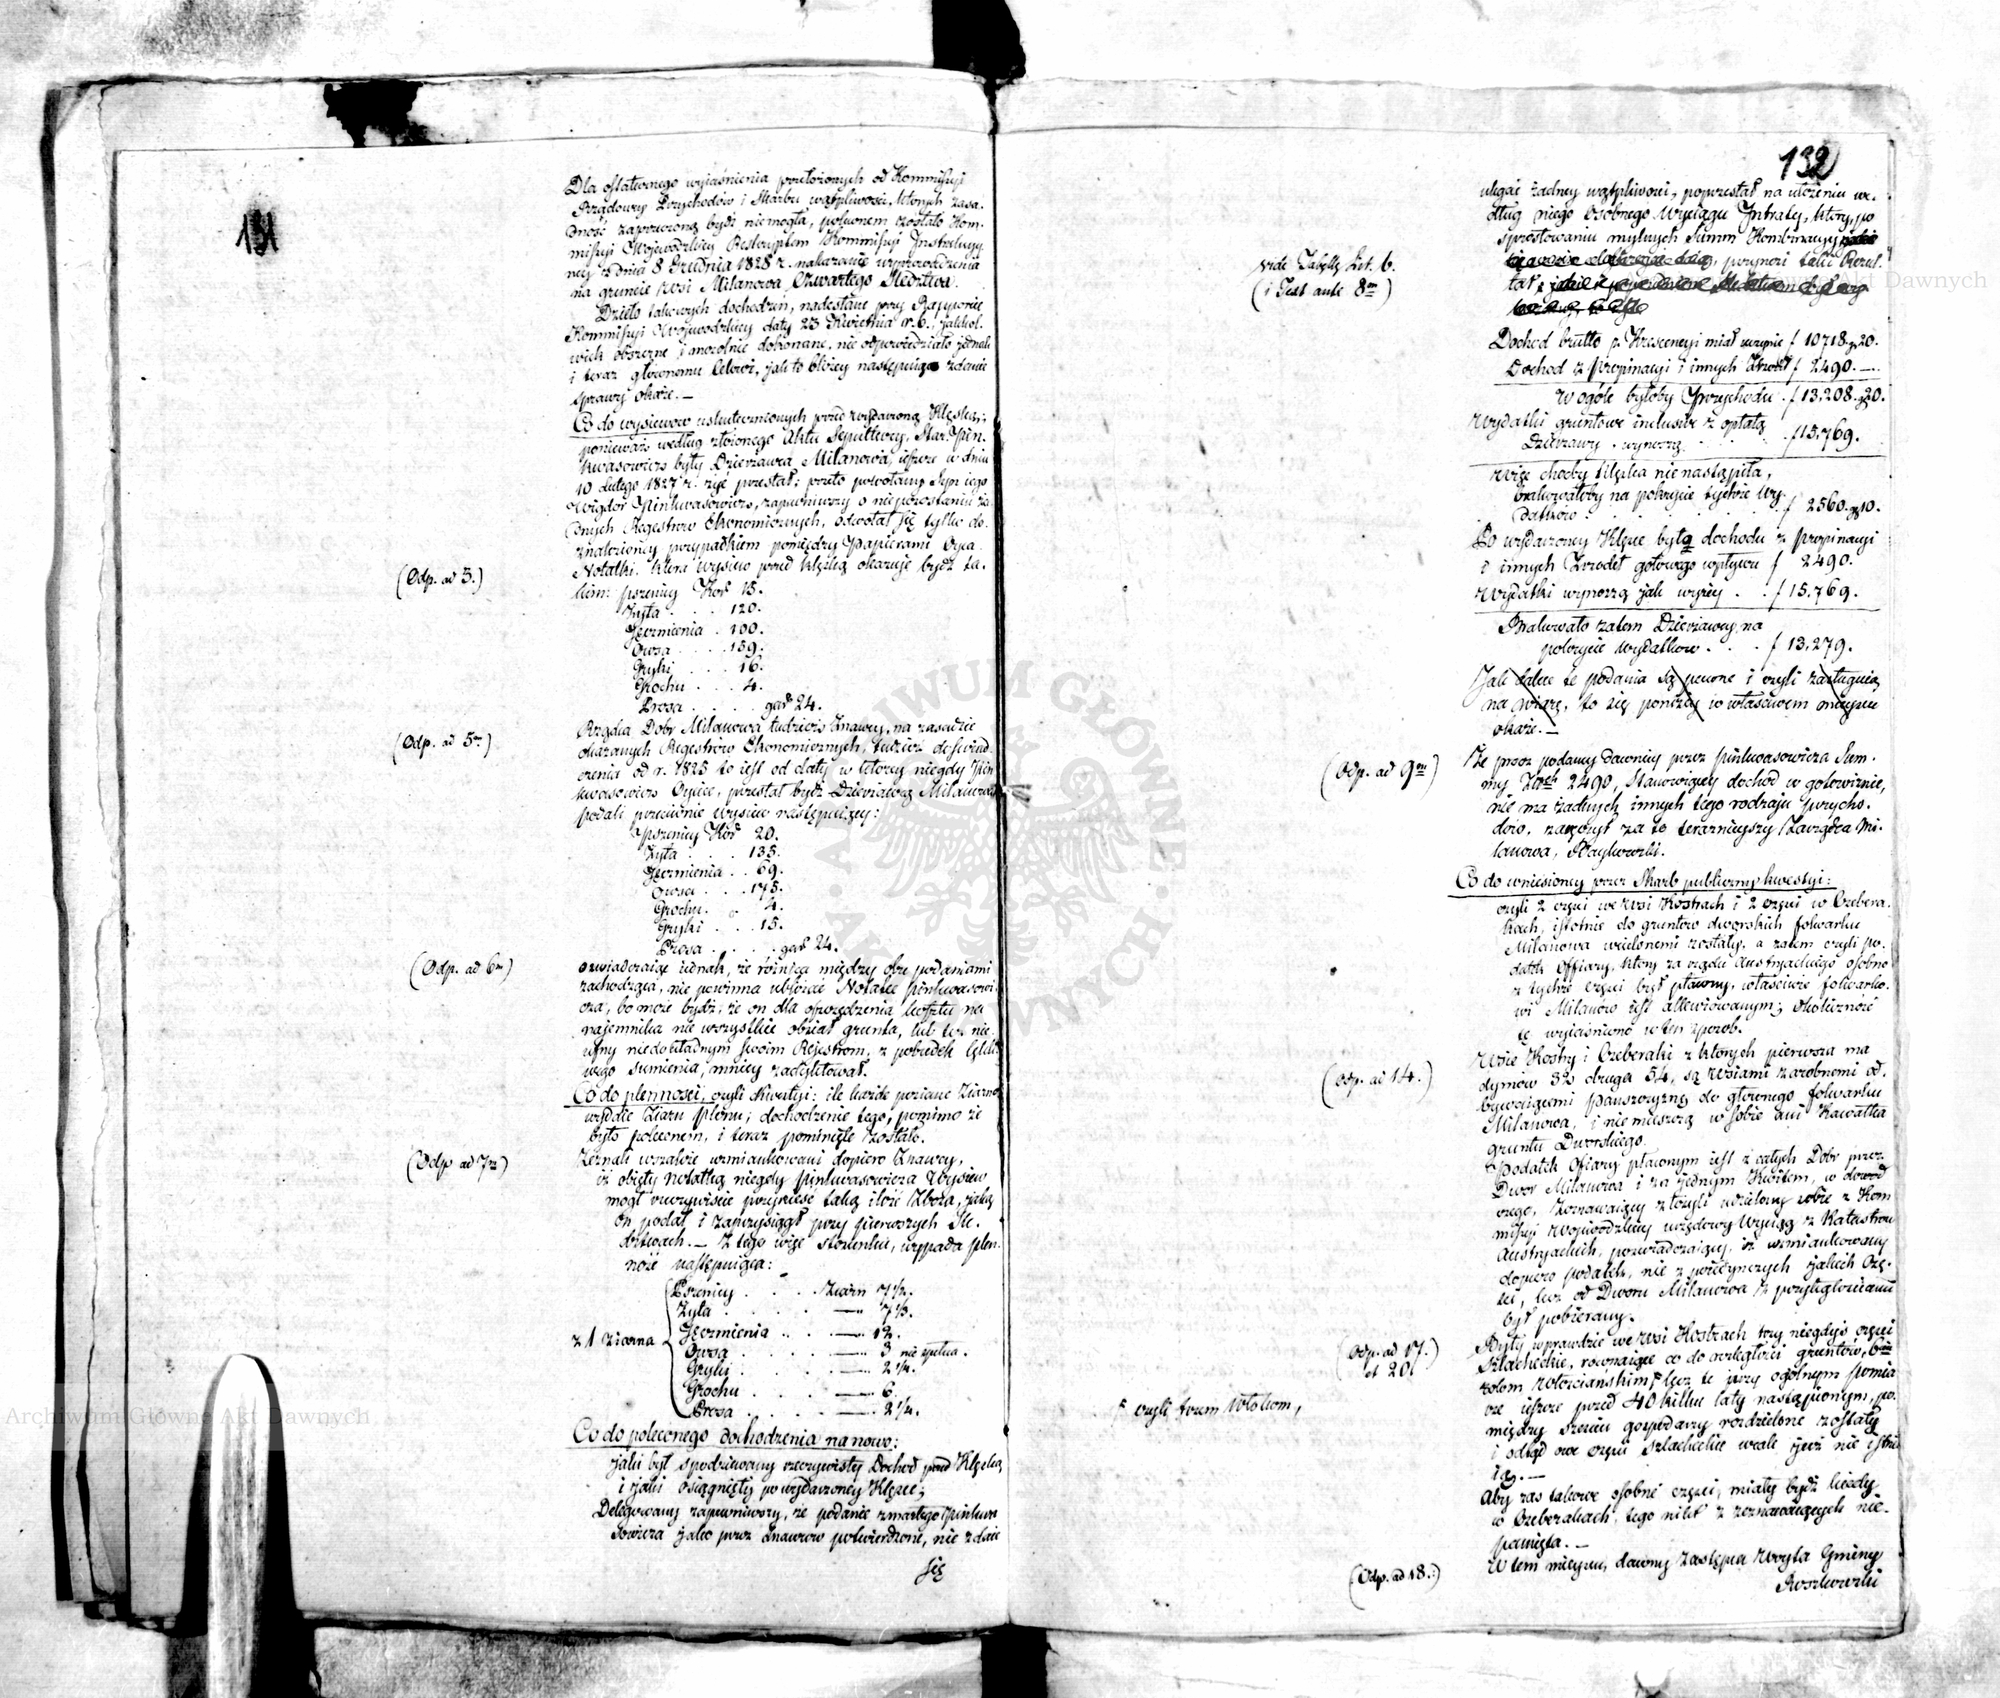 131
Dla ostatecznego wyiaśnienia przełożonych od Kommissyi
Rządowey Przychodów i Skarbu wątpliwości, których zasa-
dność zaprzeczoną bydź niemogła, poleconem zostało Kom-
missyi Wojewódzkiey Reskryptem Kommissyi
z dnia 8 Grudnia 1828 r. nakazanie wyprowadzenia
na gruncie wsi Milanowa Czwartego Śledztwa.
Dzieło takowych dochodzeń, nadesłane przy Rapporcie
Kommissyi Wojewódzkiey daty 23 Kwietnia r. b., jakkol-
wiek obszerne i mozolnie dokonane, nie odpowiedziało jednak
i teraz głównemu celowi, jak to bliżey następujące zdanie
sprawy okaże. —
Co do wysiewów uskutecznionych przed wydarzoną Klęską;
ponieważ według złożonego Aktu Sepultury, Star. Pin-
kwasowicz były Dzierżawca Milanowa, ieszcze w dniu
10 Lutego 1827 r. żyć przestał; przeto powołany Syn iego
Wigdor Pinkwasowicz, zapewniwszy o niepozostaniu ża-
dnych Regestrów Ekonomicznych, odwołał się tylko do
znalezioney przypadkiem pomiędzy Papierami Oyca
Notatki, która wysiew przed klęską okazuje bydź ta-
(Odp. ad 3.)
kim: pszenicy Kor. 15.
Żyta . . . 120.
Jęczmienia . 100.
Owsa . . . . 159.
Gryki . . . 16.
Grochu . . . 4.
Prosa . . . . gar. 24.
(Odp. ad 5m)
Rządca Dobr Milanowa tudzież Znawcy, na zasadzie
okazanych Regestrów Ekonomicznych, tudzież doświad-
czenia od r. 1825 to iest od daty w którey niegdy Pin-
kwasowicz Oyciec, przestał bydź Dzierżawcą Milanowa
podali przeciwnie wysiew następujący:
Pszenicy Kor. 20.
Żyta . . . 135.
Jęczmienia . . 69.
Owsa . . . 175.
Grochu . . . 4.
Gryki . . . 15.
Prosa . . . . gar. 24.
(Odp. ad 6m)
oswiadczaiąc iednak, że różnica między obu podaniami
zachodząca, nie powinna ubliżać Notatce Pinkwasowi-
cza, bo może bydź, że on dla oszczędzenia kosztu na
najemnika nie wszystkie obsiał grunta, lub też nie-
ufny niedokładnym swoim Regestrom, z pobudek lękli-
wego sumienia, mniey zadyktował.
Co do plenności, czyli Kwestyi: ile każde posiane Ziarno
wydaie Ziarn plonu; dochodzenie tego, pomimo że
było poleconem, i teraz pominięte zostało.
(Odp ad 7m)
Zeznali wszakże wzmiankowani dopiero Znawcy,
iż obięty notatką niegdy Pinkwasowicza Wysiew
mogł rzeczywiście przynieść taką ilość Zboża, jaką
on podał i zaprzysiągł przy pierwszych Śle-
dztwach. — Z tego więc stosunku, wypada plen-
ność następuiąca:
z 1 ziarna
Pszenicy . . . . Ziarn 7 1/2.
Żyta . . . . — 7 1/3.
Jęczmienia . . . — 12.
Owsa . . . . — 3 nie spełna.
Gryki . . . . — 2 1/4.
Grochu . . . . — 6.
Prosa . . . . — 2 1/4.
Co do poleconego dochodzenia na nowo:
jaki był spodziewany rzeczywisty Dochod przed Klęską
i jaki osiągnięty po wydarzoney Klęsce;
Delegowany zapewniwszy, że podanie zmarłego Pinkwa-
sowicza jako przez Znawców potwierdzone, nie zdaie
się
132
ulegać żadney wątpliwości, poprzestał na ułożeniu we-
dług niego osobnego Wyciągu Intraty, który, po
sprostowaniu mylnych Summ Kombinacyi
vide Tabellę Lit. b.
(i Test aule 8m)
przynosi taki Rezul-
tat:
Dochod brutto z Krescencyi miał uczynić f 10718.g20.
Dochod z Propinacyi i innych Źródeł f 2490.—.
W ogóle byłoby Przychodu . f 13,208.g20.
Wydatki gruntowe inclusive z opłatą
Dzierżawy . wynoszą . . . . f 15,769.
Więc choćby klęska nie nastąpiła,
brakowałoby na pokrycie tychże Wy-
datków : . . . . . f 2560.g10.
Po wydarzoney Klęsce było dochodu z Propinacyi
i innych Źródeł gotowego wpływu f 2490.
Wydatki wynoszą jak wyżey . . f 15,769.
Brakowało zatem Dzierżawcy na
pokrycie Wydatków . . . f 13,279.
Jak dalece te podania są pewne i czyli zasługują
na wiarę, to się poniżey w właściwem mieyscu
okaże. —
(Odp. ad 9m)
Że prócz podaney dawniey przez Pinkwasowicza Sum-
my Złch 2490, stanowiącey dochod w gotowiźnie,
nie ma żadnych innych tego rodzaju przycho-
dów, zaręczył za to teraznieyszy Rządca Mi-
lanowa, Raykowski.
Co do wniesioney przez Skarb publiczny kwestyi:
czyli 2 części we Wsi Kostrach i 2 części w Czebera-
kach, istotnie do gruntów dworskich folwarku
Milanowa wcielonemi zostały, a zatem czyli po-
datek Offiary, który za rządu Austryackiego osobno
z tychże części był płacony, właściwie folwarko-
wi Milanów iest allewiowanym; okoliczność
tę wyjaśniono w ten sposób.
(Odp. ad 14.)
Wsie Kostry i Czeberaki z których pierwsza ma
dymów 32 druga 54, są wsiami zarobnemi od-
bywaiącemi pańszczyznę do głównego folwarku
Milanowa, i nie mieszczą w sobie ani Kawałka
gruntu Dworskiego.
Podatek Ofiary płaconym iest z całych Dobr przez
Dwór Milanowa i za jednym Kwitem, w dowód
czego, Zeznawaiący złożyli udzielony sobie z Kom-
missyi Wojewódzkiey urzędowy Wyciąg z Katastrów
Austryackich, poświadczaiący, iż wzmiankowany
dopiero podatek, nie z poiedynczych jakich Czę-
ści, lecz od Dworu Milanowa z przyległościami
był pobierany.
(Odp. ad 17.)
et 20.
Były wprawdzie we Wsi Kostrach trzy niegdyś części
Szlacheckie, równaiące co do rozległości gruntów,
rolom Włościańskim, lecz te przy ogólnym pomia-
rze ieszcze przed 40 kilku laty nastąpionym, po-
F czyli trzem Włokom,
między sześciu gospodarzy rozdzielone zostały
i odtąd owe części szlacheckie wcale już nie istnie-
ią. —
Aby zaś takowe osobne części, miały bydź kiedy
w Czeberakach, tego nikt z zeznawaiących nie-
pamięta. —
(Odp. ad 18.)
W tem mieyscu, dawny Zastępca Woyta Gminy
Roszkowski